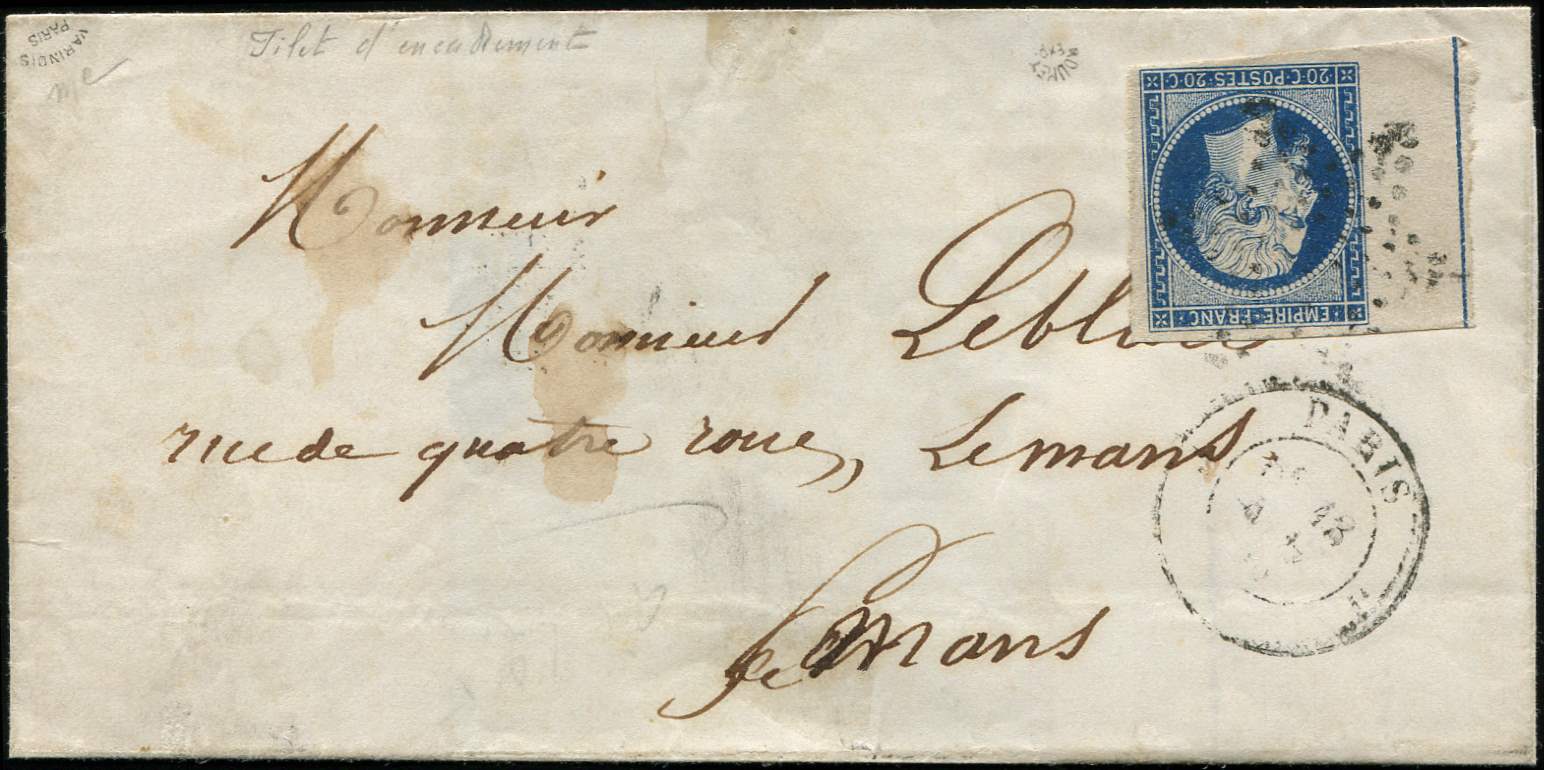 VARINOIS
PARIS
Filet d'encadrement
ROUMET
EXP.
20·C·POSTES·20·C
EMPIRE·FRANC
Monsieur
Monsieur
rue de quatre roue, Lemans
PARIS
Le Mans